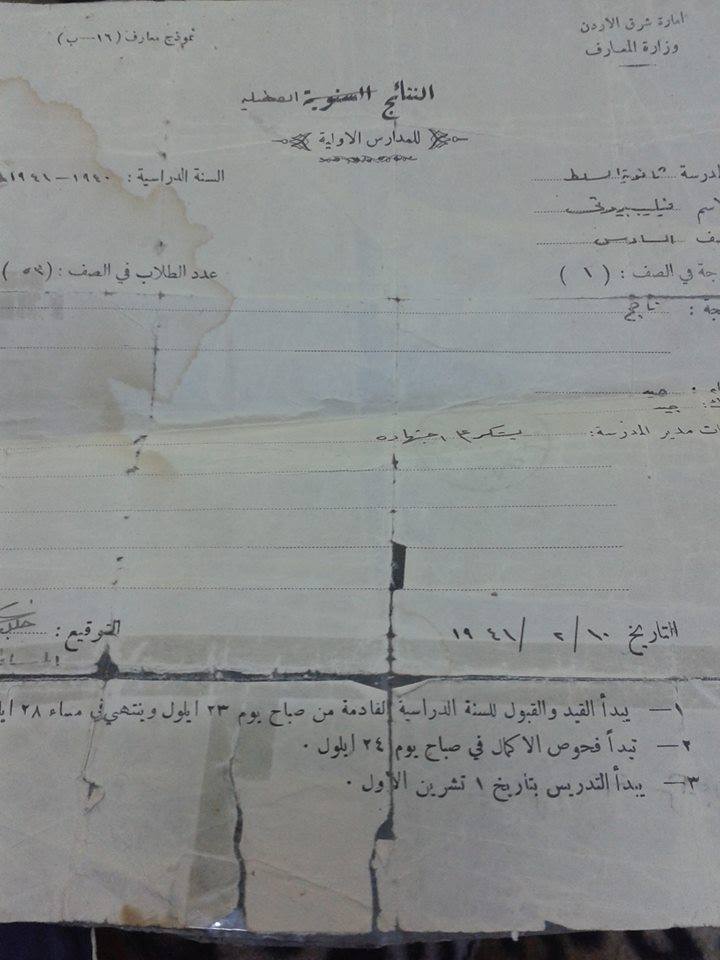 امارة شرق الاردن
وزارة المعارف
نموذج معارف (١٦—ب)
النتائج السنوية الفصلية
للمدارس الاولية
درسة ثانوية السلط
السنة الدراسية : ١٩٤٠—١٩٤١
اسم
صف السادس
جة في الصف : (١)
عدد الطلاب في الصف : (٥٣)
جة : ناجح
جيد
ك: جيد
ات مدير المدرسة: يشكر على اجتهاده
التاريخ ١٠/ ٢ / ١٩٤١
التوقيع :
١— يبدأ القيد والقبول للسنة الدراسية القادمة من صباح يوم ٢٣ ايلول وينتهي في مساء ٢٨ ايل
٢— تبدأ فحوص الاكمال في صباح يوم ٢٤ ايلول .
٣— يبدأ التدريس بتاريخ ١ تشرين الأول .